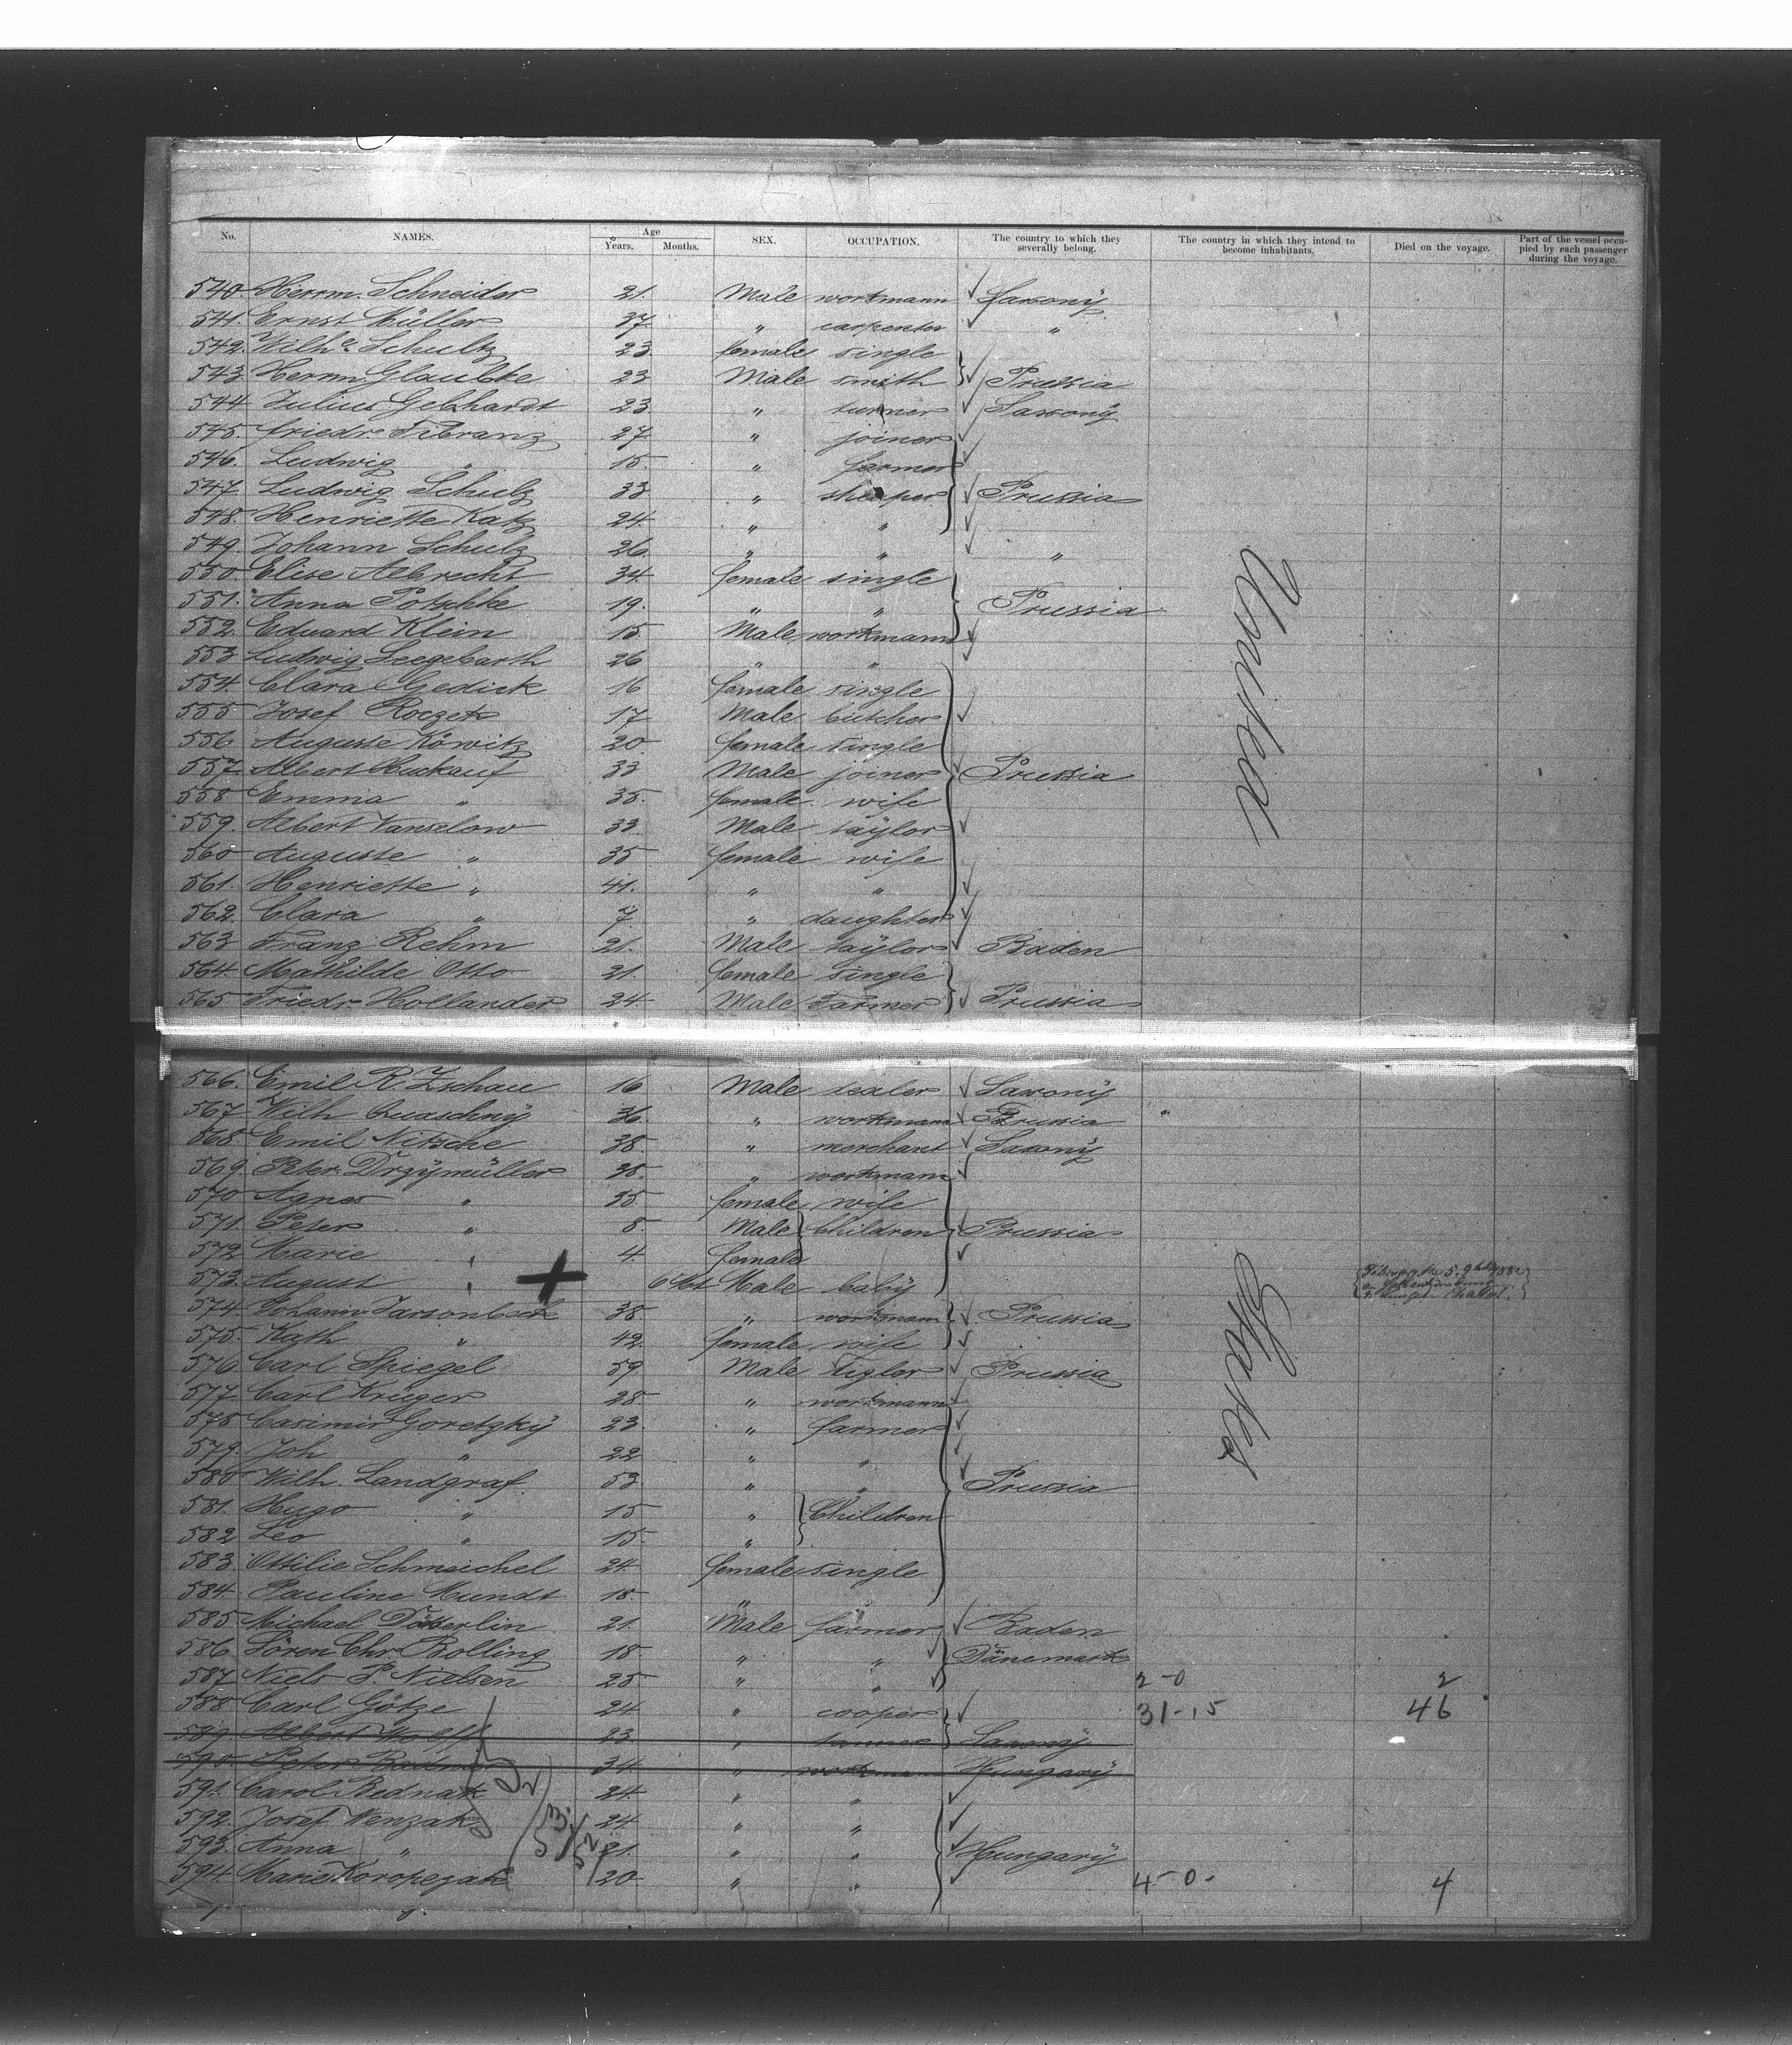 No. NAMES. Age Years. Months. SEX. OCCUPATION. The country to which they severally belong. The country in which they intend to become inhabitants. Died on the voyage. Part of the vessel occupied by each passenger during the voyage.
540. Herrm. Schneider 21. Male workmann Saxony
541. Ernst Müller 37. " carpenter "
542. Wilhe. Schultz 23 female single
543. Herrm. Glaubke 23 Male smith Prussia
544. Julius Gebhardt 23 " turner Saxony
545. Friedr. Fibranz 27. " joiner
546. Ludwig " 15. " farmer
547. Ludwig Schulz 33 " Prussia
548. Henriette Katz 24. " "
549. Johann Schulz 26. " " "
550. Elise Albrecht 34. female single
551. Anna Potschke 19. " " Prussia
552. Eduard Klein 15. Male workmann
553 Ludwig Seegebarth 26 " "
554. Clara Gedick 16 female single
555 Josef 17 Male butcher
556 Auguste Köwitz 20 female single
557. Albert Ruckauf 33 Male joiner Prussia
558 Emma " 35. female wife
559. Albert Vanselow 33 Male taylor
560 Auguste " 35 female wife
561. Henriette " 41. " "
562. Clara " 7. " daughter
563 Franz Rehm 21. Male taylor Baden
564. Mathilde Otto 21. female single
565 Friedr. Hollander 24. Male Farmer Prussia
United
566. Emil R. Zschau 16 Male Saxony
567 Wilh Quaschny 36. " workmann Prussia "
568. Emil Nitsche 38. " merchant Saxony
569. Peter Drzymüller 38. " workmann
570 Agnes " 35 female wife
571. Peter " 8. Male Children Prussia
572 Marie " 4. female
573. August " 6 Mt Male baby
574. Johann 38 " workmann Prussia
575. Kath " 42. female wife
576. Carl Spiegel 59 Male Prussia
577. Carl Krüger 28 " workmann
578 Casimir Goretzky 23 " farmer
579. Joh " 22 " "
580 Wilh. Landgraf. 53 " " Prussia
581. Hugo " 15 " Children
582 Leo " 15. "
583. Ottilie Schmeichel 24. female single
584. Pauline Mundt 18. "
585 Michael 21. Male farmer Baden
586 Sören Chr. Bolling 18. " " Dänemark
587 Niels P. Nielsen 25 " " 2-0 2
588 Carl Götze 24 " cooper 31-15 46
589. Albert Wolff 23. " Saxony
590. Peter 34. " Hungary
591. Carol Bednak 24. " "
592. Josef Wenzak 24 " "
593. Anna " 21. " " Hungary
594. Marie Koropezak 20 " " 4-0. 4
States